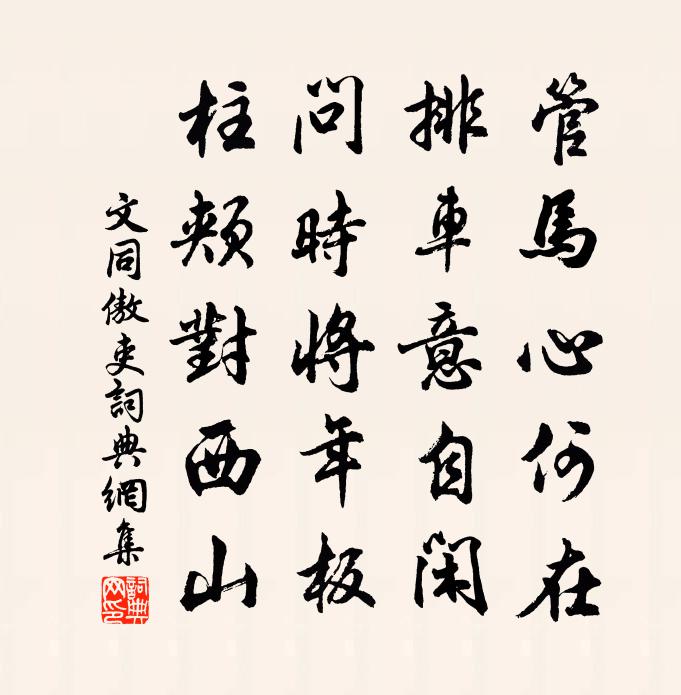 管馬心何在
排車意自閑
問時將年板
柱頰對西山
文同傲吏詞典網集
詞典网印